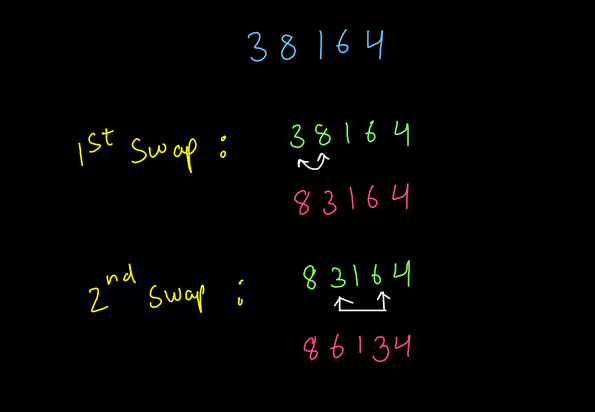 38164
1st swap : 38164
83164
2nd swap : 83164
86134